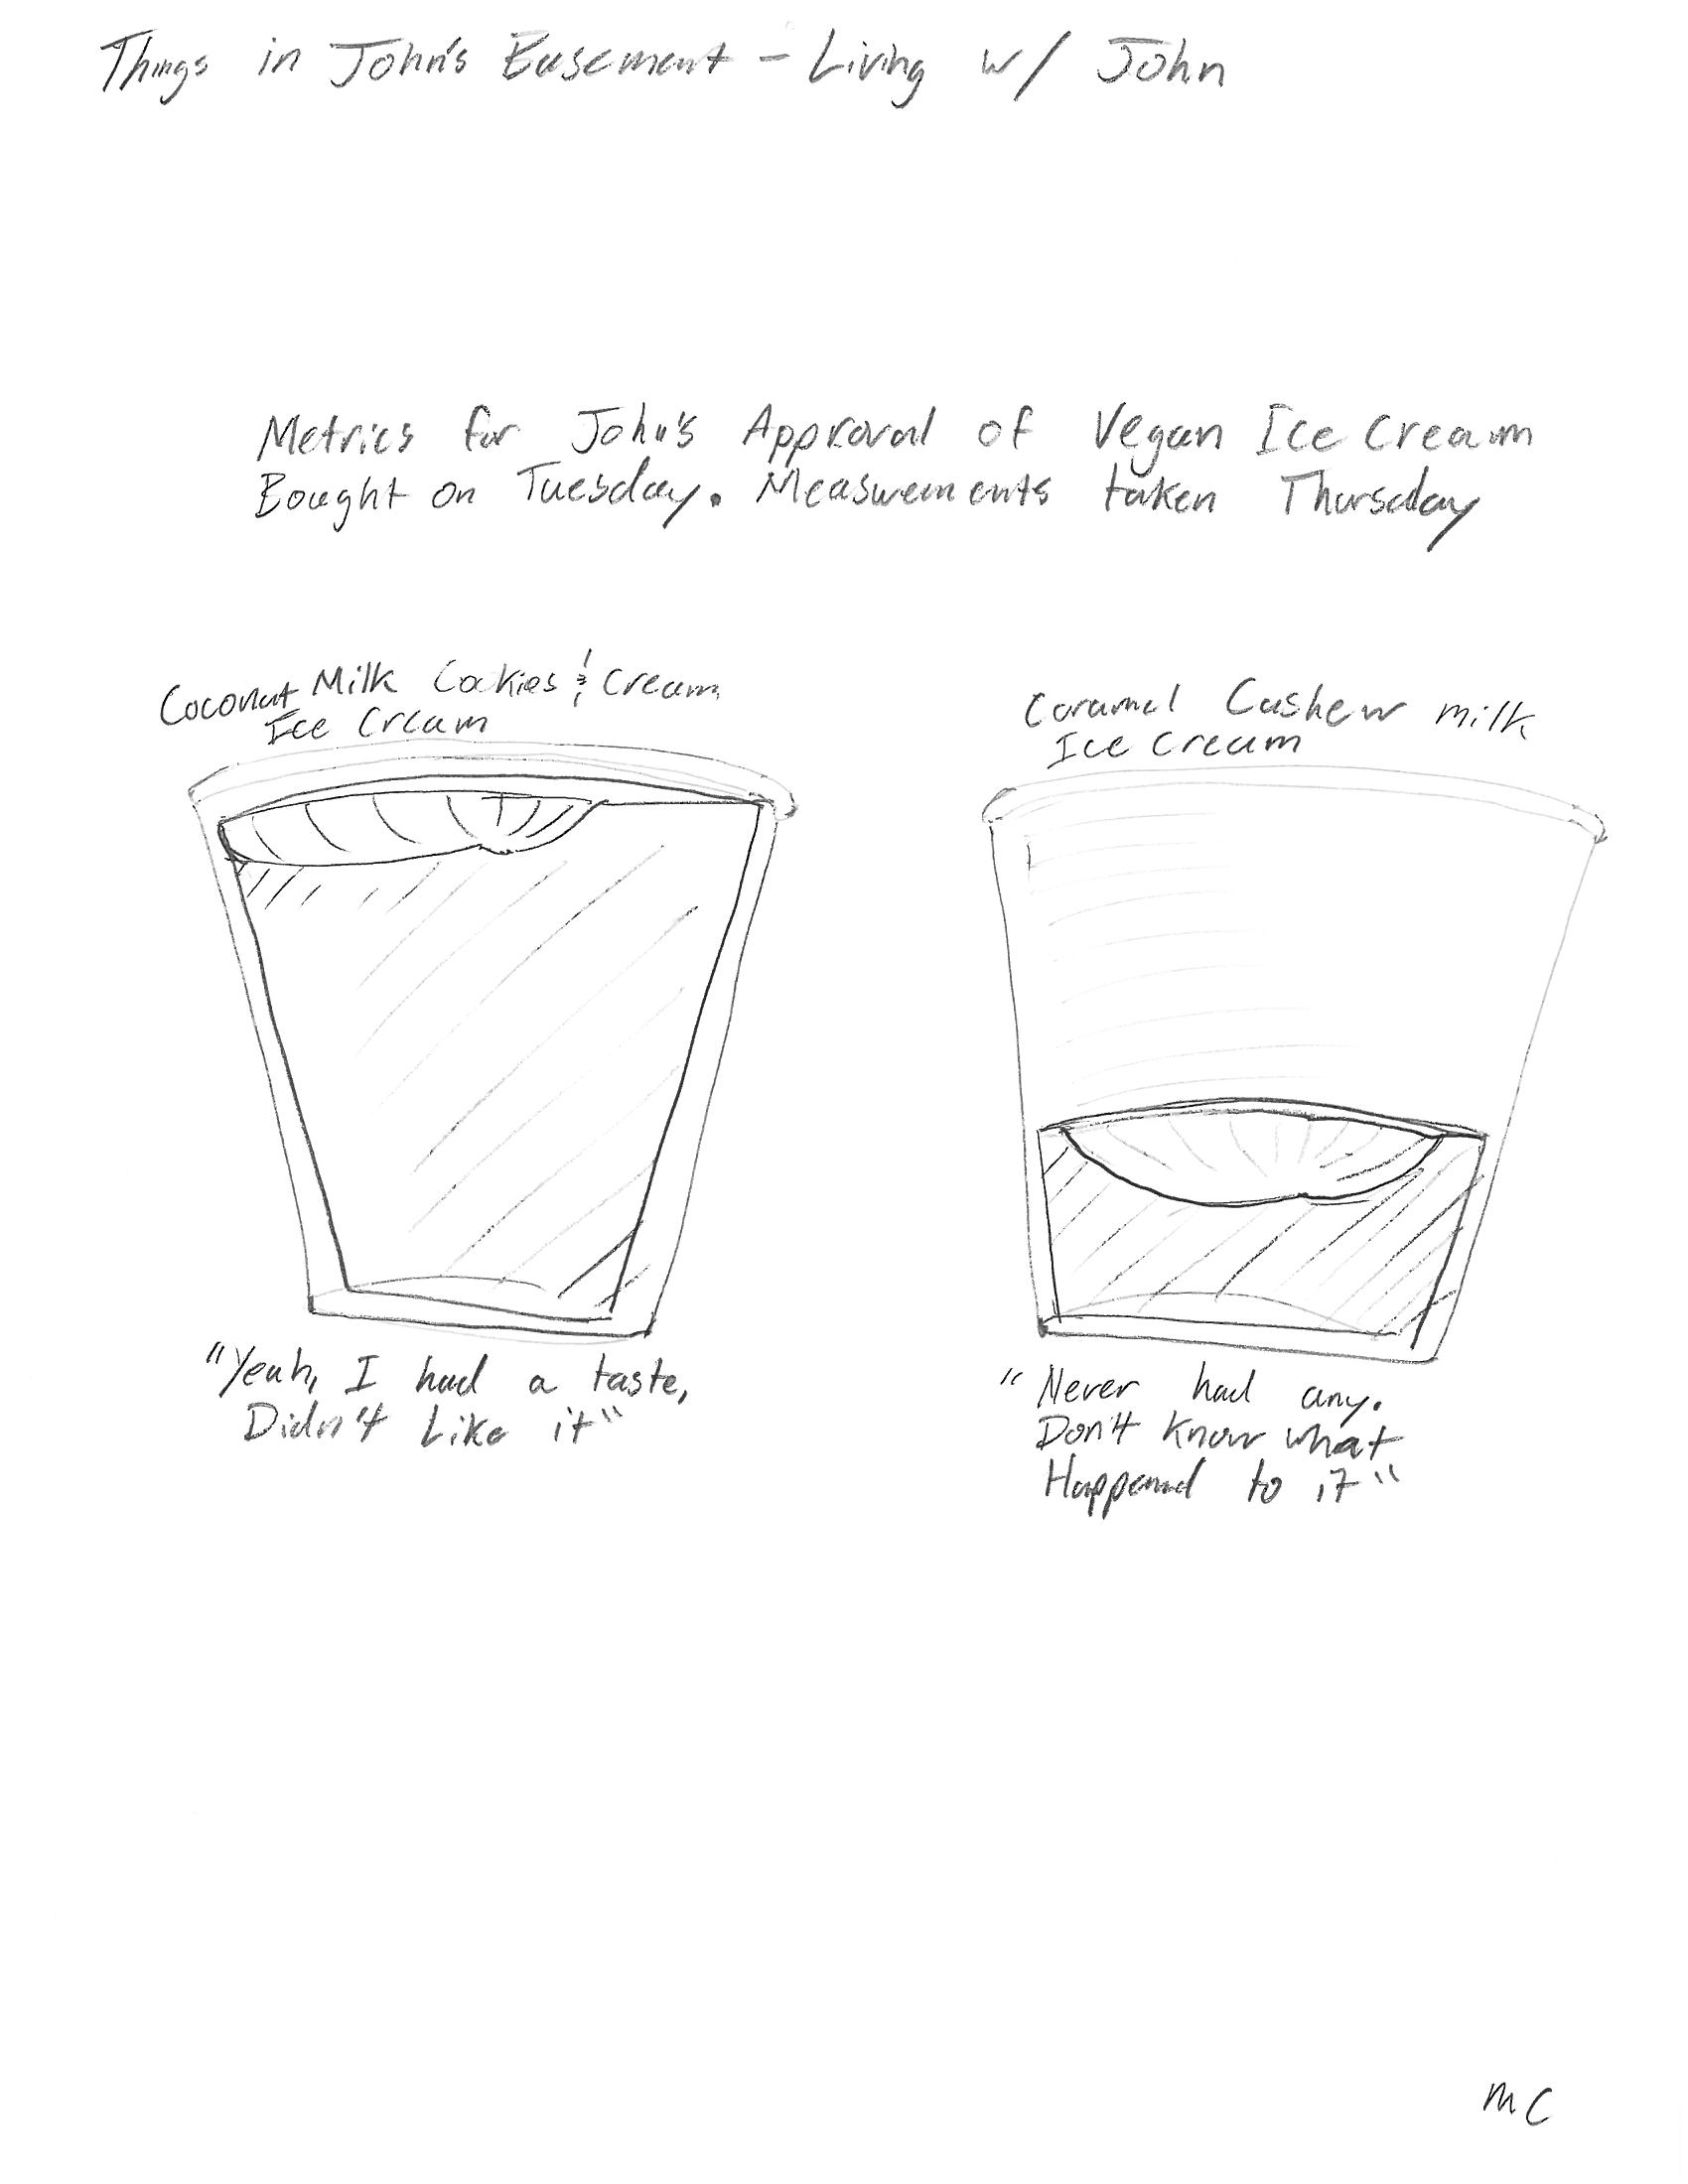 Things in John's Basement - Living w/ John
Metrics for John's Approval of Vegan Ice Cream
Bought on Tuesday. Measurements taken Thursday
Coconut Milk Cookies & Cream
Ice Cream
Caramel Cashew milk
Ice Cream
"Yeah, I had a taste,
Didn't Like it"
"Never had any.
Don't Know what
Happened to it"
MC